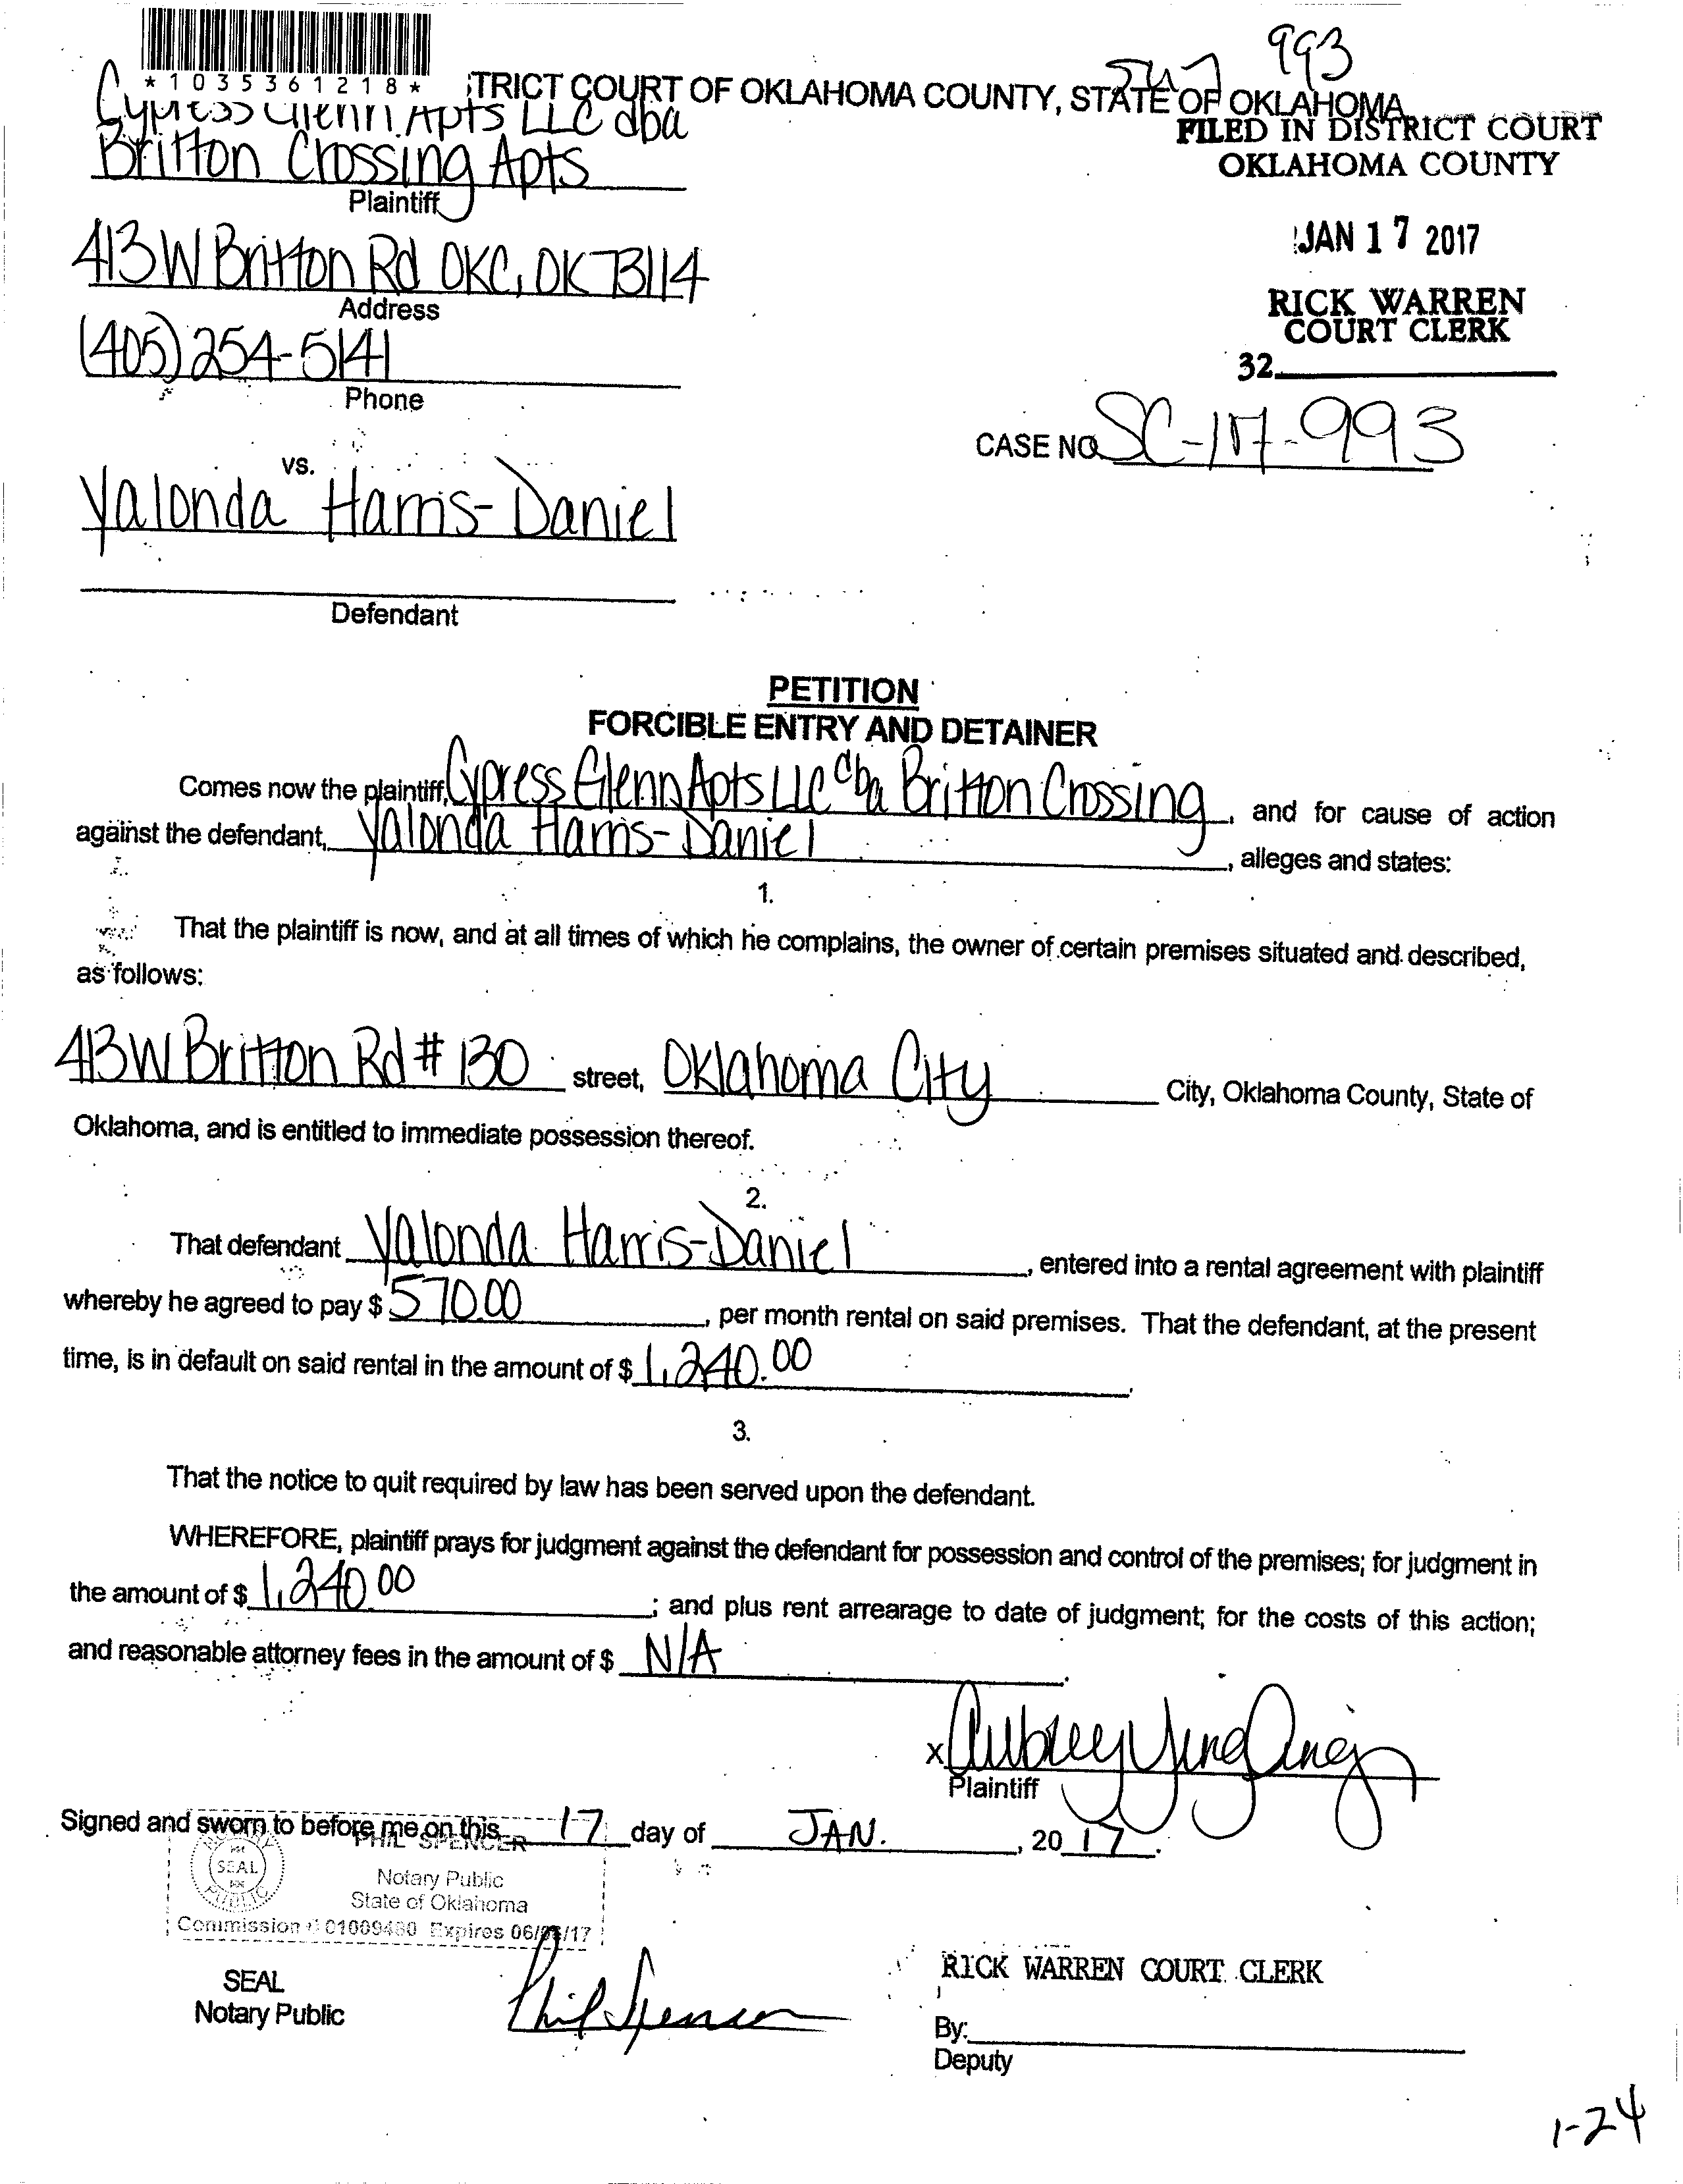 993
*1035361218*
TRICT COURT OF OKLAHOMA COUNTY, STATE OF OKLAHOMA
Cypress Glenn Apts LLC dba
Britton Crossing Apts
Plaintiff
FILED IN DISTRICT COURT
OKLAHOMA COUNTY
JAN 17 2017
RICK WARREN
COURT CLERK
32
413 W Britton Rd OKC, OK 73114
Address
(405) 254-5141
Phone
CASE NO. SC-17-993
vs.
Yalonda Harris-Daniel
Defendant
PETITION
FORCIBLE ENTRY AND DETAINER
Comes now the plaintiff, Cypress Glenn Apts LLC dba Britton Crossing, and for cause of action
against the defendant, Yalonda Harris-Daniel, alleges and states:
1.
That the plaintiff is now, and at all times of which he complains, the owner of certain premises situated and described,
as follows:
413 W Britton Rd # 130 street, Oklahoma City City, Oklahoma County, State of
Oklahoma, and is entitled to immediate possession thereof.
2.
That defendant Yalonda Harris-Daniel, entered into a rental agreement with plaintiff
whereby he agreed to pay $ 570.00, per month rental on said premises. That the defendant, at the present
time, is in default on said rental in the amount of $ 1,240.00.
3.
That the notice to quit required by law has been served upon the defendant.
WHEREFORE, plaintiff prays for judgment against the defendant for possession and control of the premises; for judgment in
the amount of $ 1,240.00; and plus rent arrearage to date of judgment; for the costs of this action;
and reasonable attorney fees in the amount of $ N/A.
x
Plaintiff
Signed and sworn to before me on this 17 day of JAN., 20 17.
PHIL SPENCER
SEAL
Notary Public
State of Oklahoma
Commission # 01009480 Expires 06/ /17
SEAL
Notary Public
Phil Spencer
RICK WARREN COURT CLERK
By:
Deputy
1-24